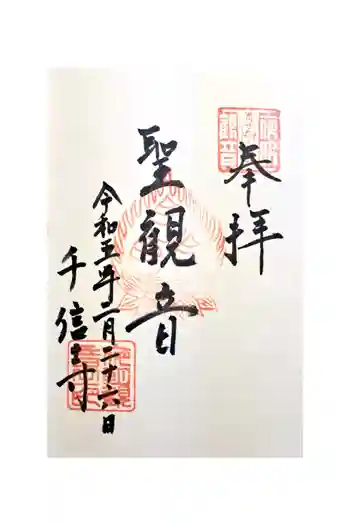 奉拝
聖観音
令和五年一月二十六日
千信寺